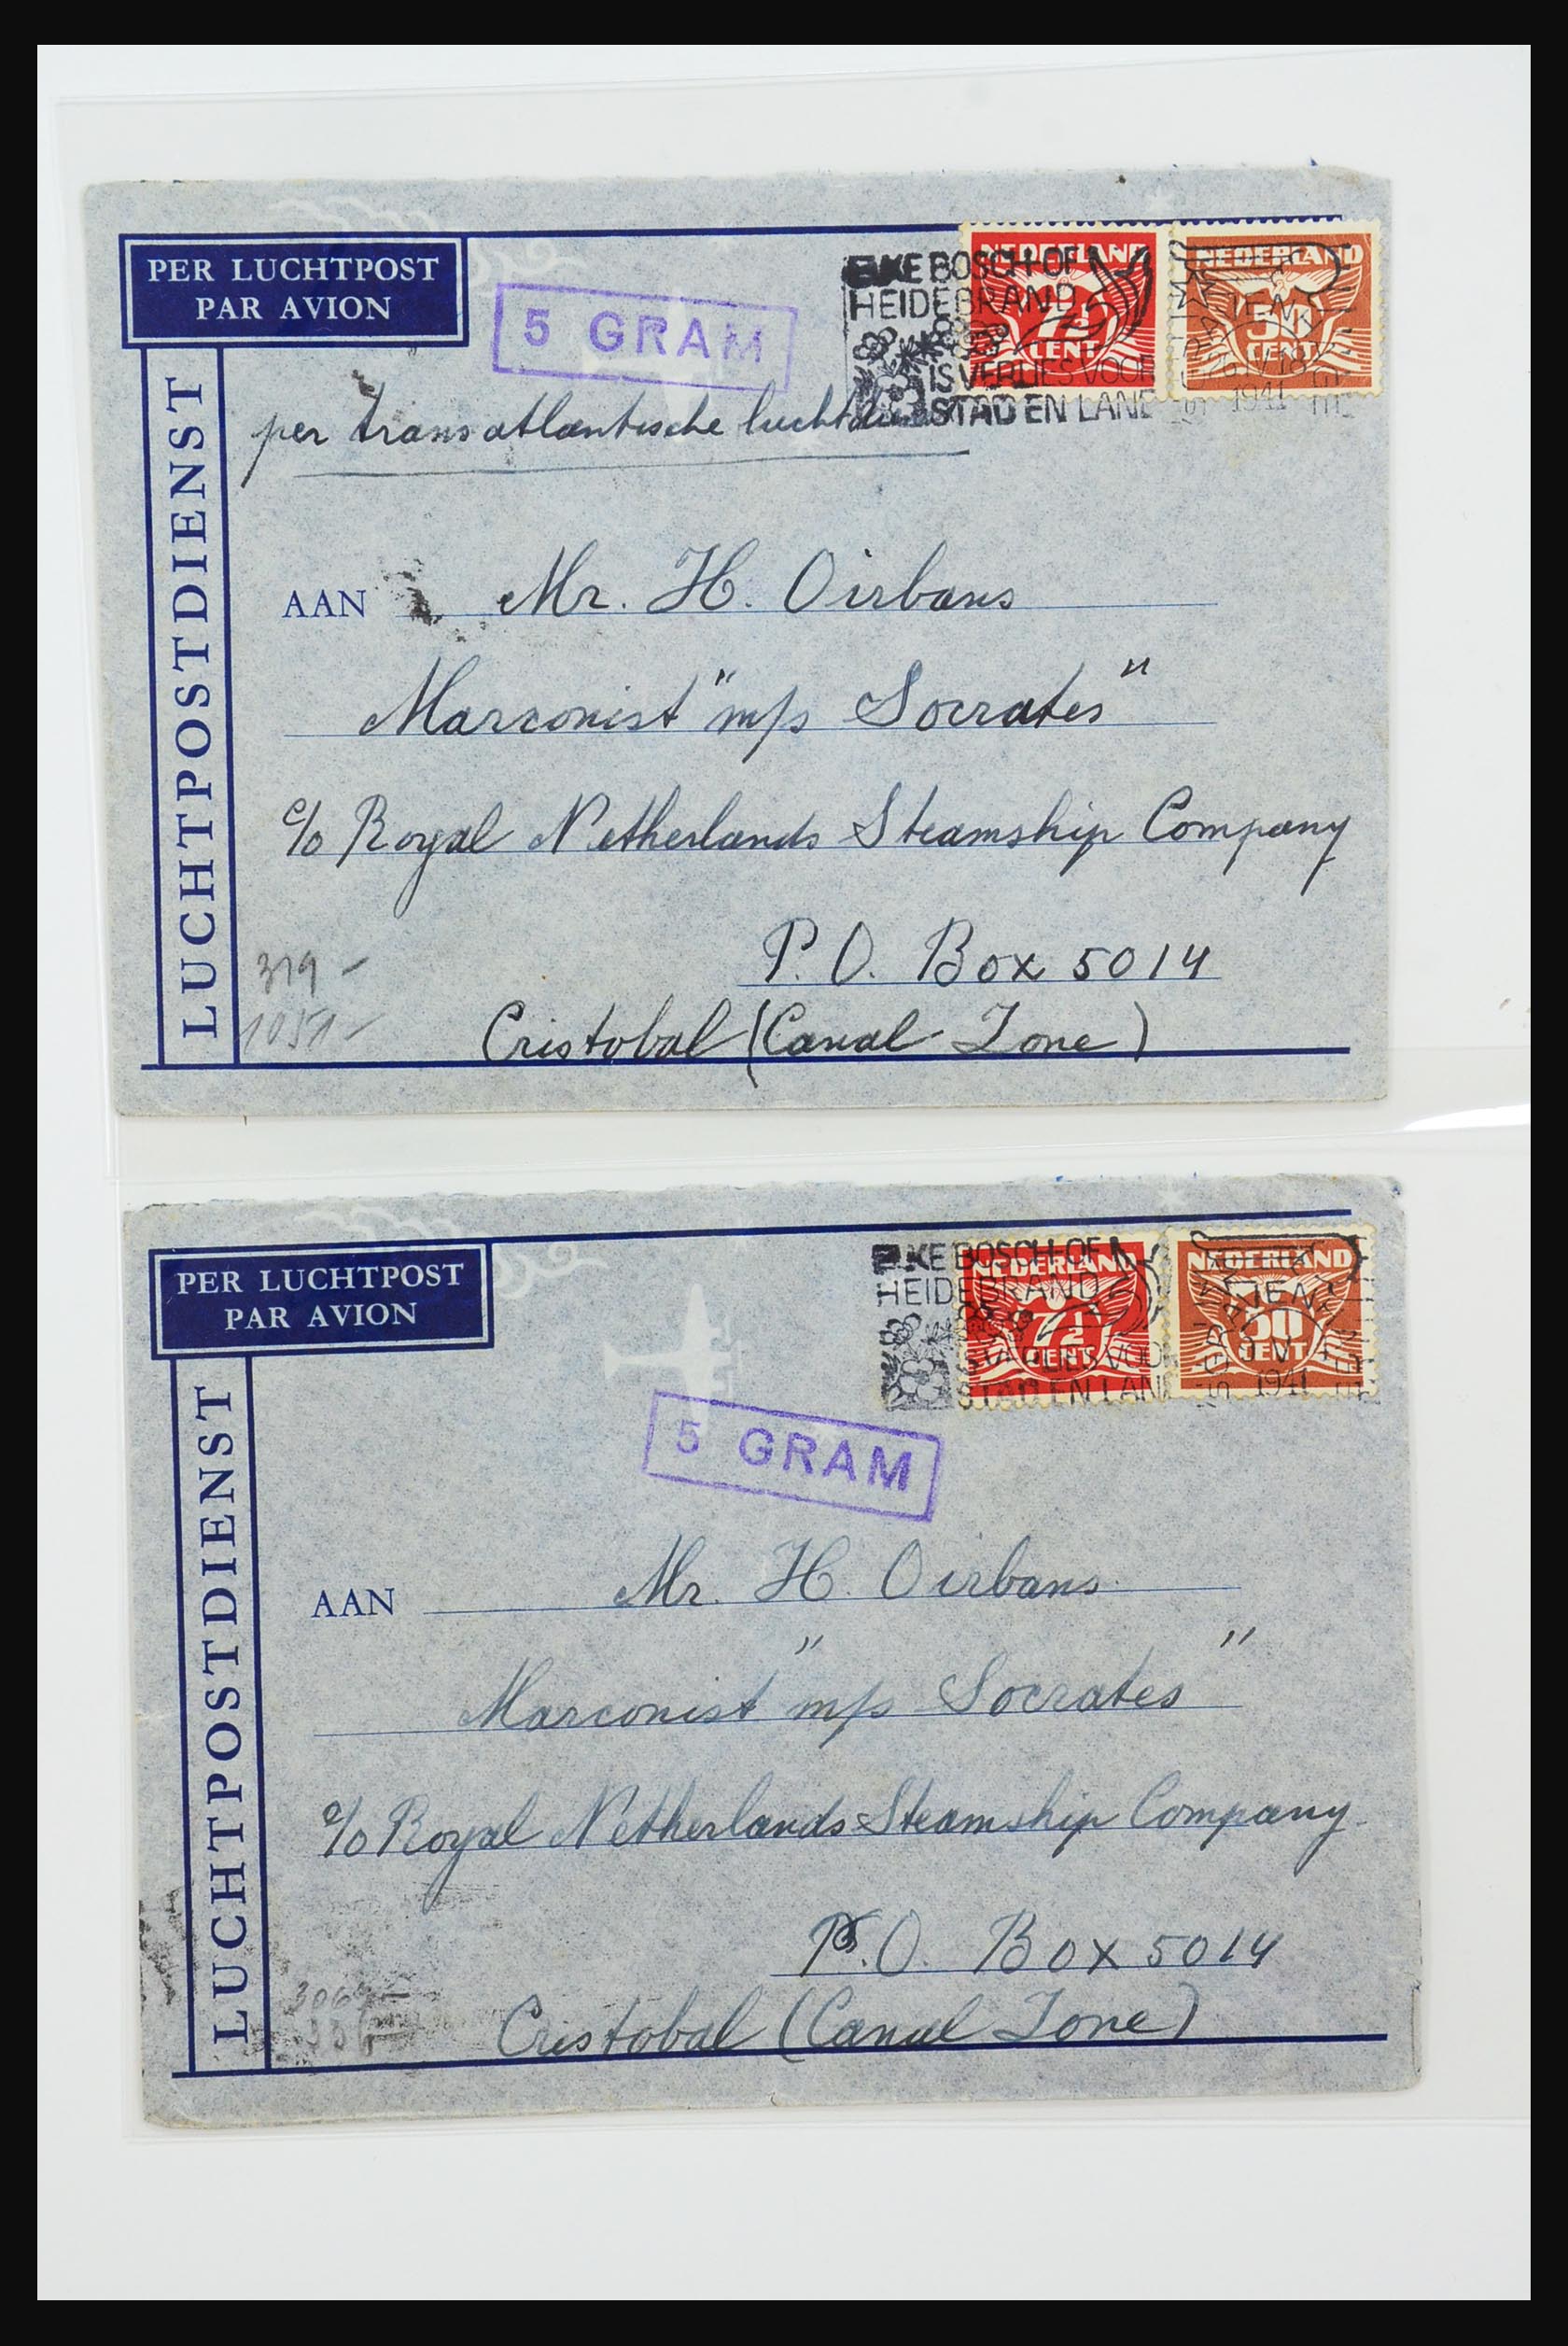 PER LUCHTPOST
PAR AVION
5 GRAM
ELKE BOSCH- OF
HEIDEBRAND
IS VERLIES VOOR
STAD EN LAND
NEDERLAND
7½
CENT
NEDERLAND
50
CENT
1941
per transatlantische
LUCHTPOSTDIENST
AAN Mr. H. Oirbans
Marconist "m/s Socrates"
c/o Royal Netherlands Steamship Company
P.O. Box 5014
Cristobal (Canal Zone)
319 -
1051 -
PER LUCHTPOST
PAR AVION
5 GRAM
ELKE BOSCH- OF
HEIDEBRAND
IS VERLIES VOOR
STAD EN LAND
NEDERLAND
7½
CENT
NEDERLAND
50
CENT
1941
LUCHTPOSTDIENST
AAN Mr. H. Oirbans.
Marconist "m/s Socrates"
c/o Royal Netherlands Steamship Company.
P.O. Box 5014
Cristobal (Canal Zone)